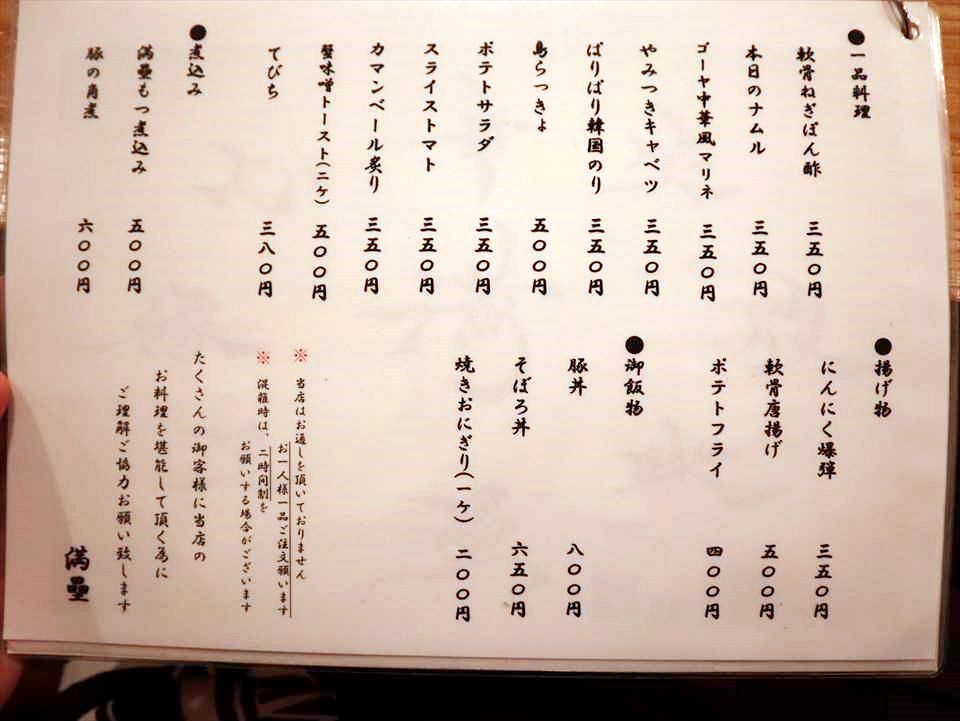 ●一品料理
軟骨ねぎぽん酢 三五〇円
本日のナムル 三五〇円
ゴーヤ中華風マリネ 三五〇円
やみつきキャベツ 三五〇円
ぱりぱり韓国のり 三五〇円
島らっきょ 五〇〇円
ポテトサラダ 三五〇円
スライストマト 三五〇円
カマンベール炙り 三五〇円
蟹味噌トースト(二ケ) 五〇〇円
てびち 三八〇円
●煮込み
満壘もつ煮込み 五〇〇円
豚の角煮 六〇〇円
●揚げ物
にんにく爆弾 三五〇円
軟骨唐揚げ 五〇〇円
ポテトフライ 四〇〇円
●御飯物
豚丼 八〇〇円
そぼろ丼 六五〇円
焼きおにぎり(一ケ) 二〇〇円
※当店はお通しを頂いておりません
お一人様一品ご注文願います
※混雑時は、二時間制を
お願いする場合がございます
たくさんの御客様に当店の
お料理を堪能して頂く為に
ご理解ご協力お願い致します
満壘